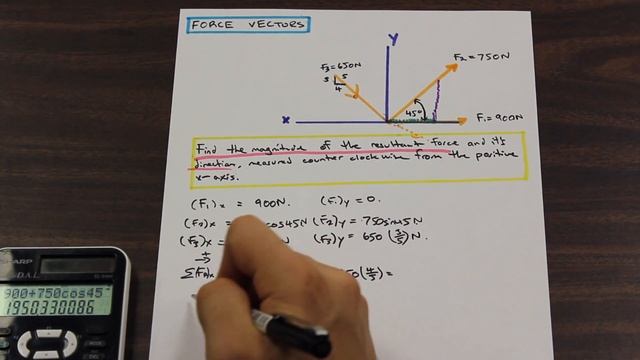 FORCE VECTORS
Y
F3 = 650N
F2 = 750N
3 5
4
45°
x
F1 = 900N
Find the magnitude of the resultant force and it's
direction, measured counter clockwise from the positive
x-axis.
(F1)x = 900N. (F1)y = 0.
(F2)x = cos45N (F2)y = 750sin45N
(F3)x = N (F3)y = 650 (3/5) N.
+
→
Σ(FR)x (4/5) =
SHARP
D.A.L.
900+750cos45
1950330086